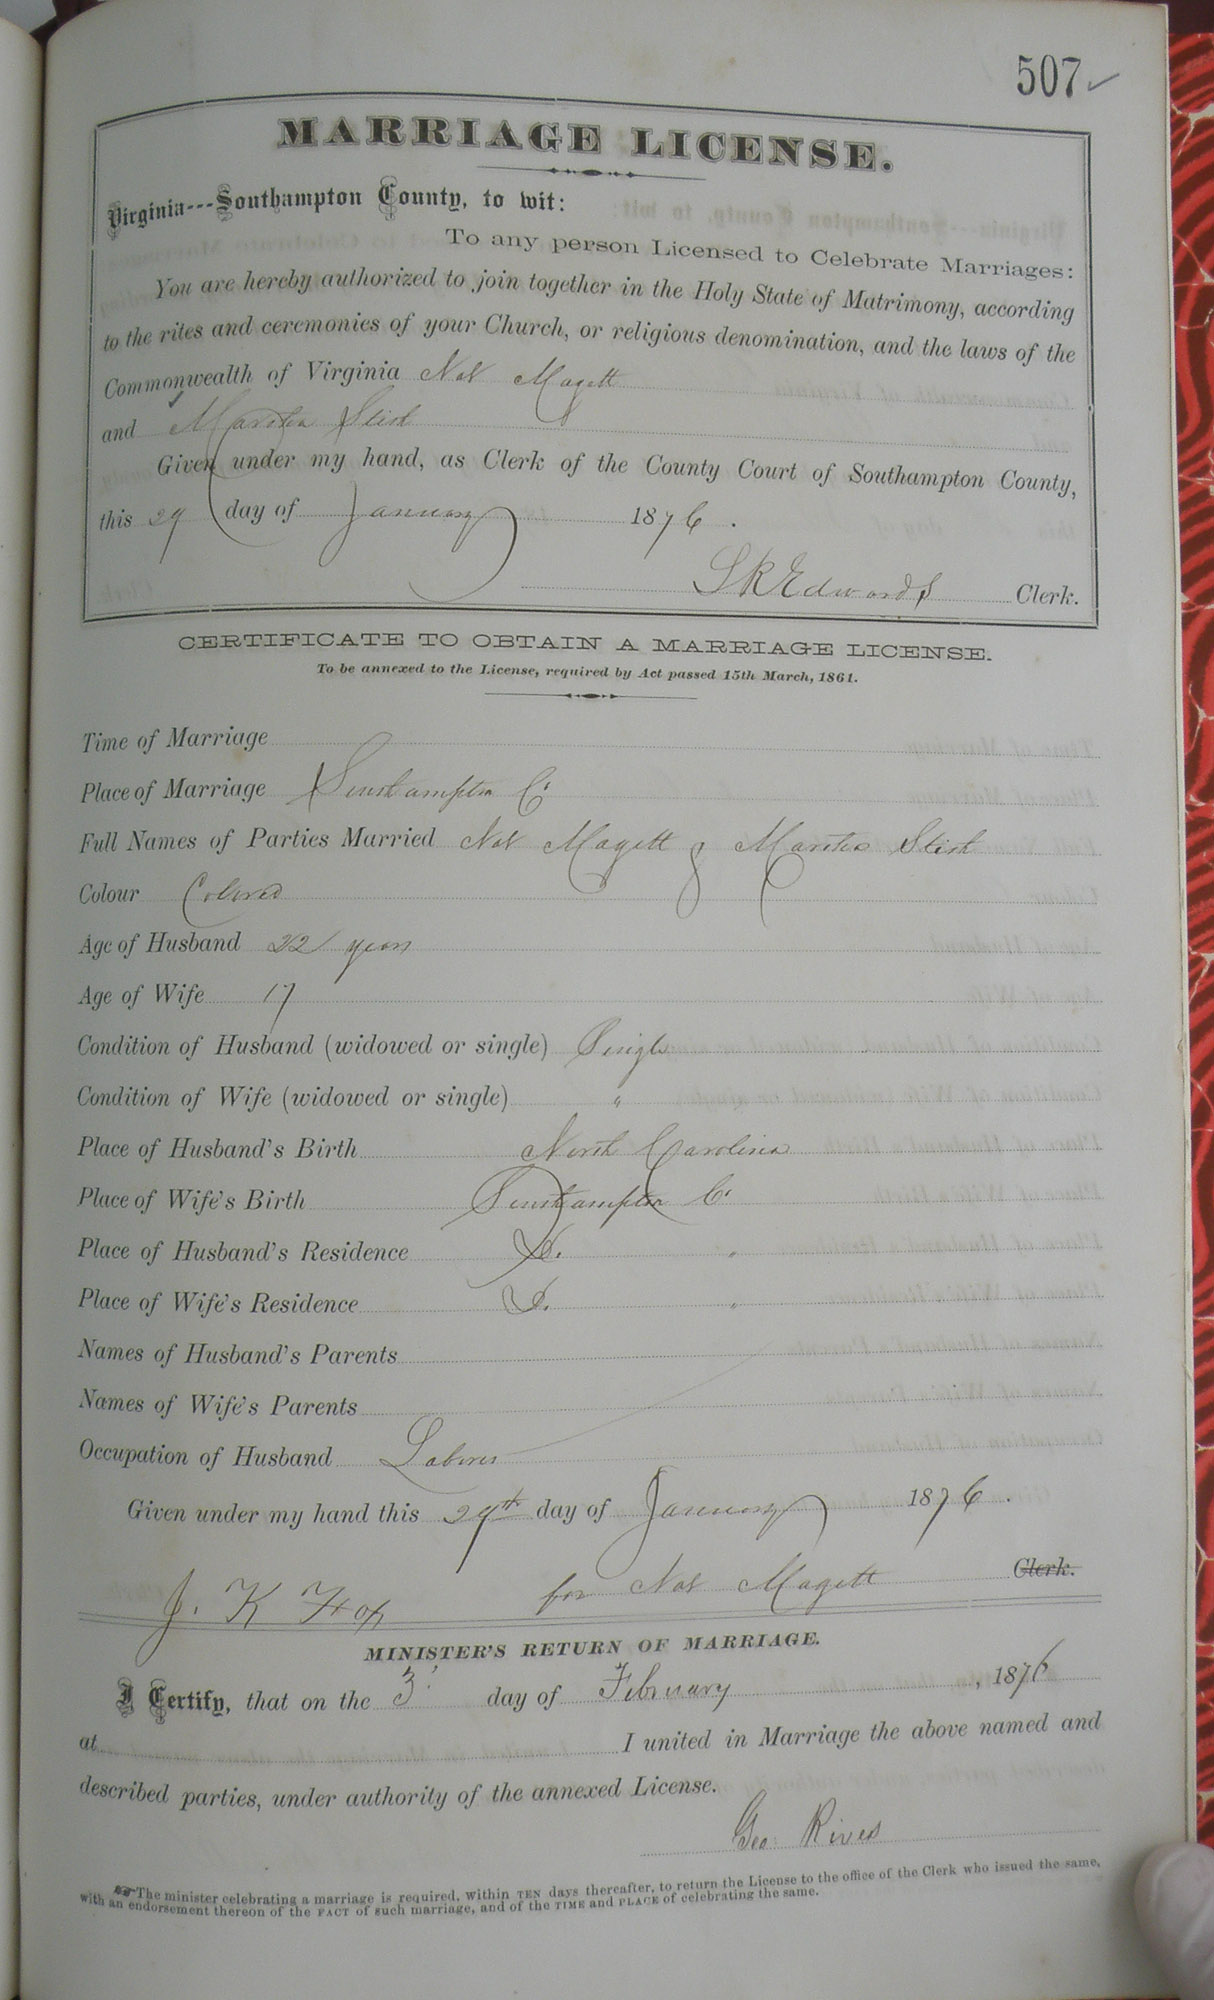 507 ✓
MARRIAGE LICENSE.
Virginia---Southampton County, to wit:
To any person Licensed to Celebrate Marriages:
You are hereby authorized to join together in the Holy State of Matrimony, according
to the rites and ceremonies of your Church, or religious denomination, and the laws of the
Commonwealth of Virginia Nat Magett
and
Given under my hand, as Clerk of the County Court of Southampton County,
this 29 day of January 1876.
Clerk.
CERTIFICATE TO OBTAIN A MARRIAGE LICENSE.
To be annexed to the License, required by Act passed 15th March, 1861.
Time of Marriage
Place of Marriage Southampton Co
Full Names of Parties Married Nat Magett &
Colour Colored
Age of Husband 22 years
Age of Wife 17
Condition of Husband (widowed or single) Single
Condition of Wife (widowed or single) "
Place of Husband's Birth North Carolina
Place of Wife's Birth Southampton Co
Place of Husband's Residence Do. "
Place of Wife's Residence Do. "
Names of Husband's Parents
Names of Wife's Parents
Occupation of Husband Laborer
Given under my hand this 29th day of January 1876.
for Nat Magett Clerk.
J. K
MINISTER'S RETURN OF MARRIAGE.
I Certify, that on the 3 day of February, 1876
at I united in Marriage the above named and
described parties, under authority of the annexed License.
Geo: Rives
☞ The minister celebrating a marriage is required, within TEN days thereafter, to return the License to the office of the Clerk who issued the same,
with an endorsement thereon of the FACT of such marriage, and of the TIME and PLACE of celebrating the same.